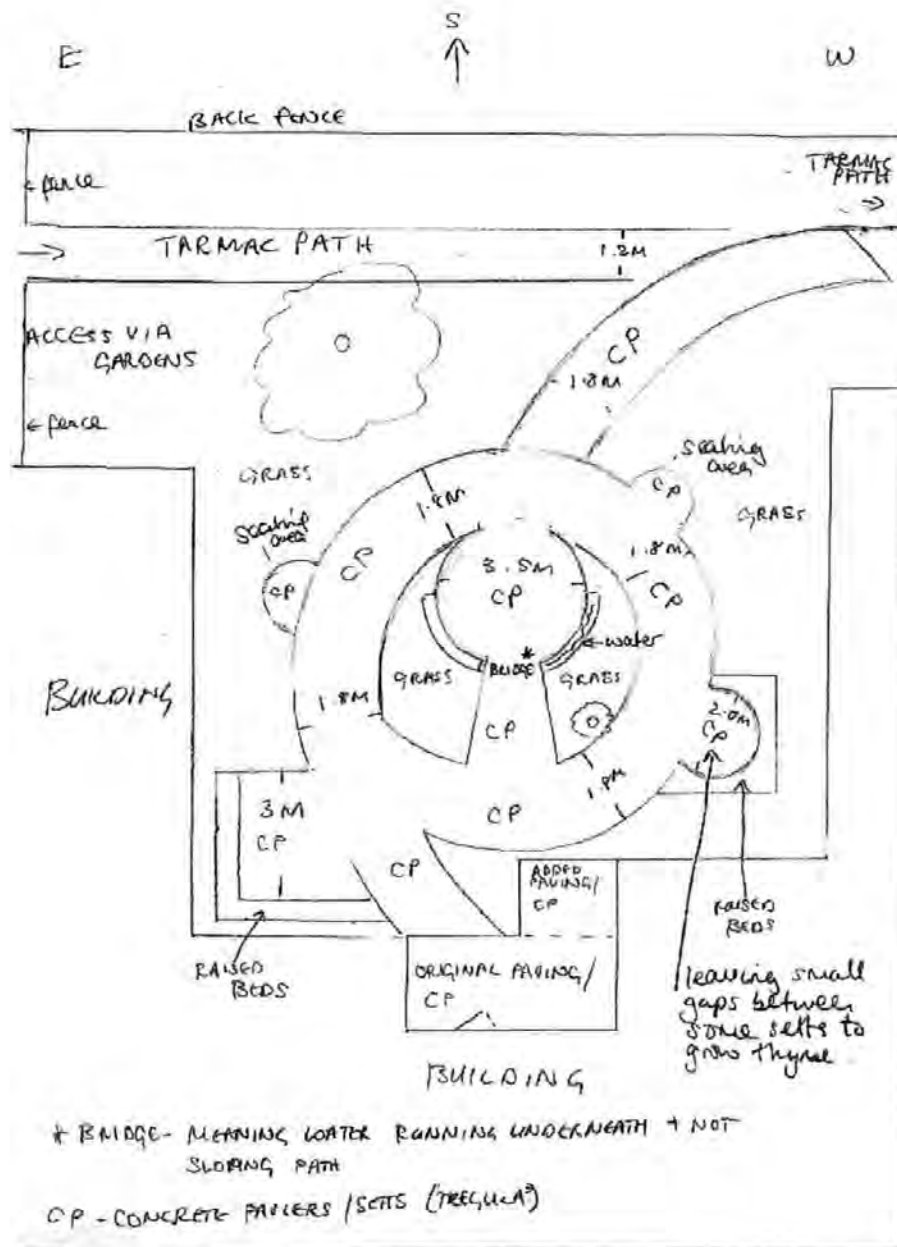 S
E
W
BACK FENCE
← fence
TARMAC
PATH
→
→ TARMAC PATH
1.2M
ACCESS VIA
GARDENS
← fence
CP
1.8M
GRASS
seating
area
CP
GRASS
1.8M
seating
area
CP
CP
3.5M
CP
1.8M
CP
← water
*
BRIDGE
GRASS
GRASS
BUILDING
1.8M
CP
2.0M
CP
1.8M
3M
CP
CP
CP
ADDED
PAVING/
CP
RAISED
BEDS
RAISED
BEDS
ORIGINAL PAVING/
CP
leaving small
gaps between
some setts to
grow thyme
BUILDING
* BRIDGE - MEANING WATER RUNNING UNDERNEATH + NOT
SLOPING PATH
CP - CONCRETE PAVERS/SETTS